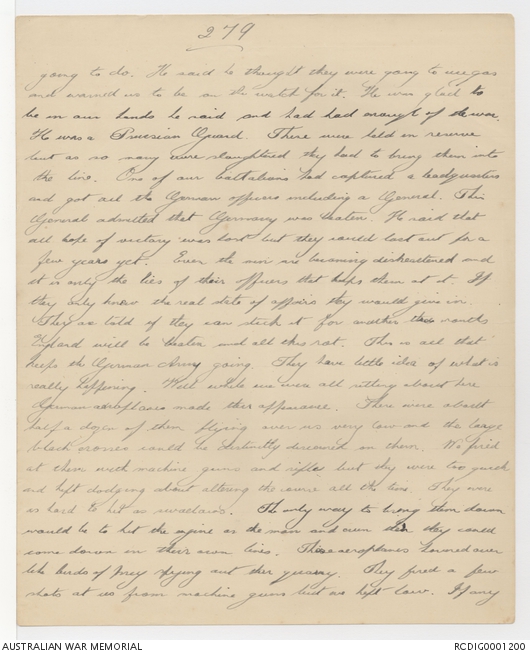 279
going to do. He said he thought they were going to use gas
and warned us to be on the watch for it. He was glad to
be in our hands he said and had had enough of the war.
He was a Prussian Guard. These were held in reserve
but as so many were slaughtered they had to bring them into
the line. One of our battalions had captured a headquarters
and got all the German officers including a General. This
General admitted that Germany was beaten. He said that
all hope of victory was lost but they could last out for a
few years yet. Even the men are becoming disheartened and
it is only the lies of their officers that keeps them at it. If
they only knew the real state of affairs they would give in.
They are told if they can stick it for another two months
England will be beaten and all this rot. This is all that
keeps the German Army going. They have little idea of what is
really happening. Well while we were all sitting about here
German aeroplanes made their appearance. There were about
half a dozen of them flying over us very low and the large
black crosses could be distinctly discerned on them. We fired
at them with machine guns and rifles but they were too quick
and kept dodging about altering the course all the time. They were
as hard to hit as swallows. The only way to bring them down
would be to hit the engine or the man and even then they could
come down in their own lines. These aeroplanes hovered over
like birds of prey spying out their quarry. They fired a few
shots at us from machine guns but we kept low. If any
AUSTRALIAN WAR MEMORIAL
RCDIG0001200